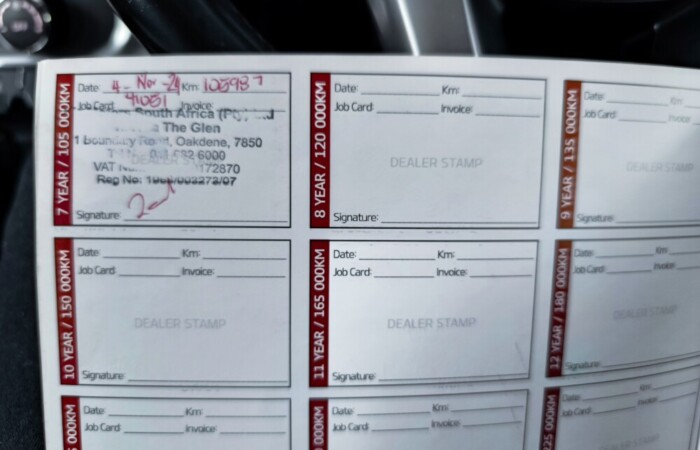 7 YEAR / 105 000KM
Date: 4 - Nov - 21 Km: 105987
Job Card: 41051 Invoice:
South Africa (P
The Glen
1 Boundary Road, Oakdene, 7850
6000
VAT 172870
Reg No:
Signature:
8 YEAR / 120 000KM
Date: Km:
Job Card: Invoice:
DEALER STAMP
Signature:
9 YEAR / 135 000KM
Date: Km:
Job Card: Invoice:
DEALER STAMP
Signature:
10 YEAR / 150 000KM
Date: Km:
Job Card: Invoice:
DEALER STAMP
Signature:
11 YEAR / 165 000KM
Date: Km:
Job Card: Invoice:
DEALER STAMP
Signature:
12 YEAR / 180 000KM
Date: Km:
Job Card: Invoice:
DEALER STAMP
Signature:
000KM
Date: Km:
Job Card: Invoice:
000KM
Date: Km:
Job Card: Invoice:
DEALER STAMP
25 000KM
Date: Km:
Job Card: Invoice:
DEALER STAMP